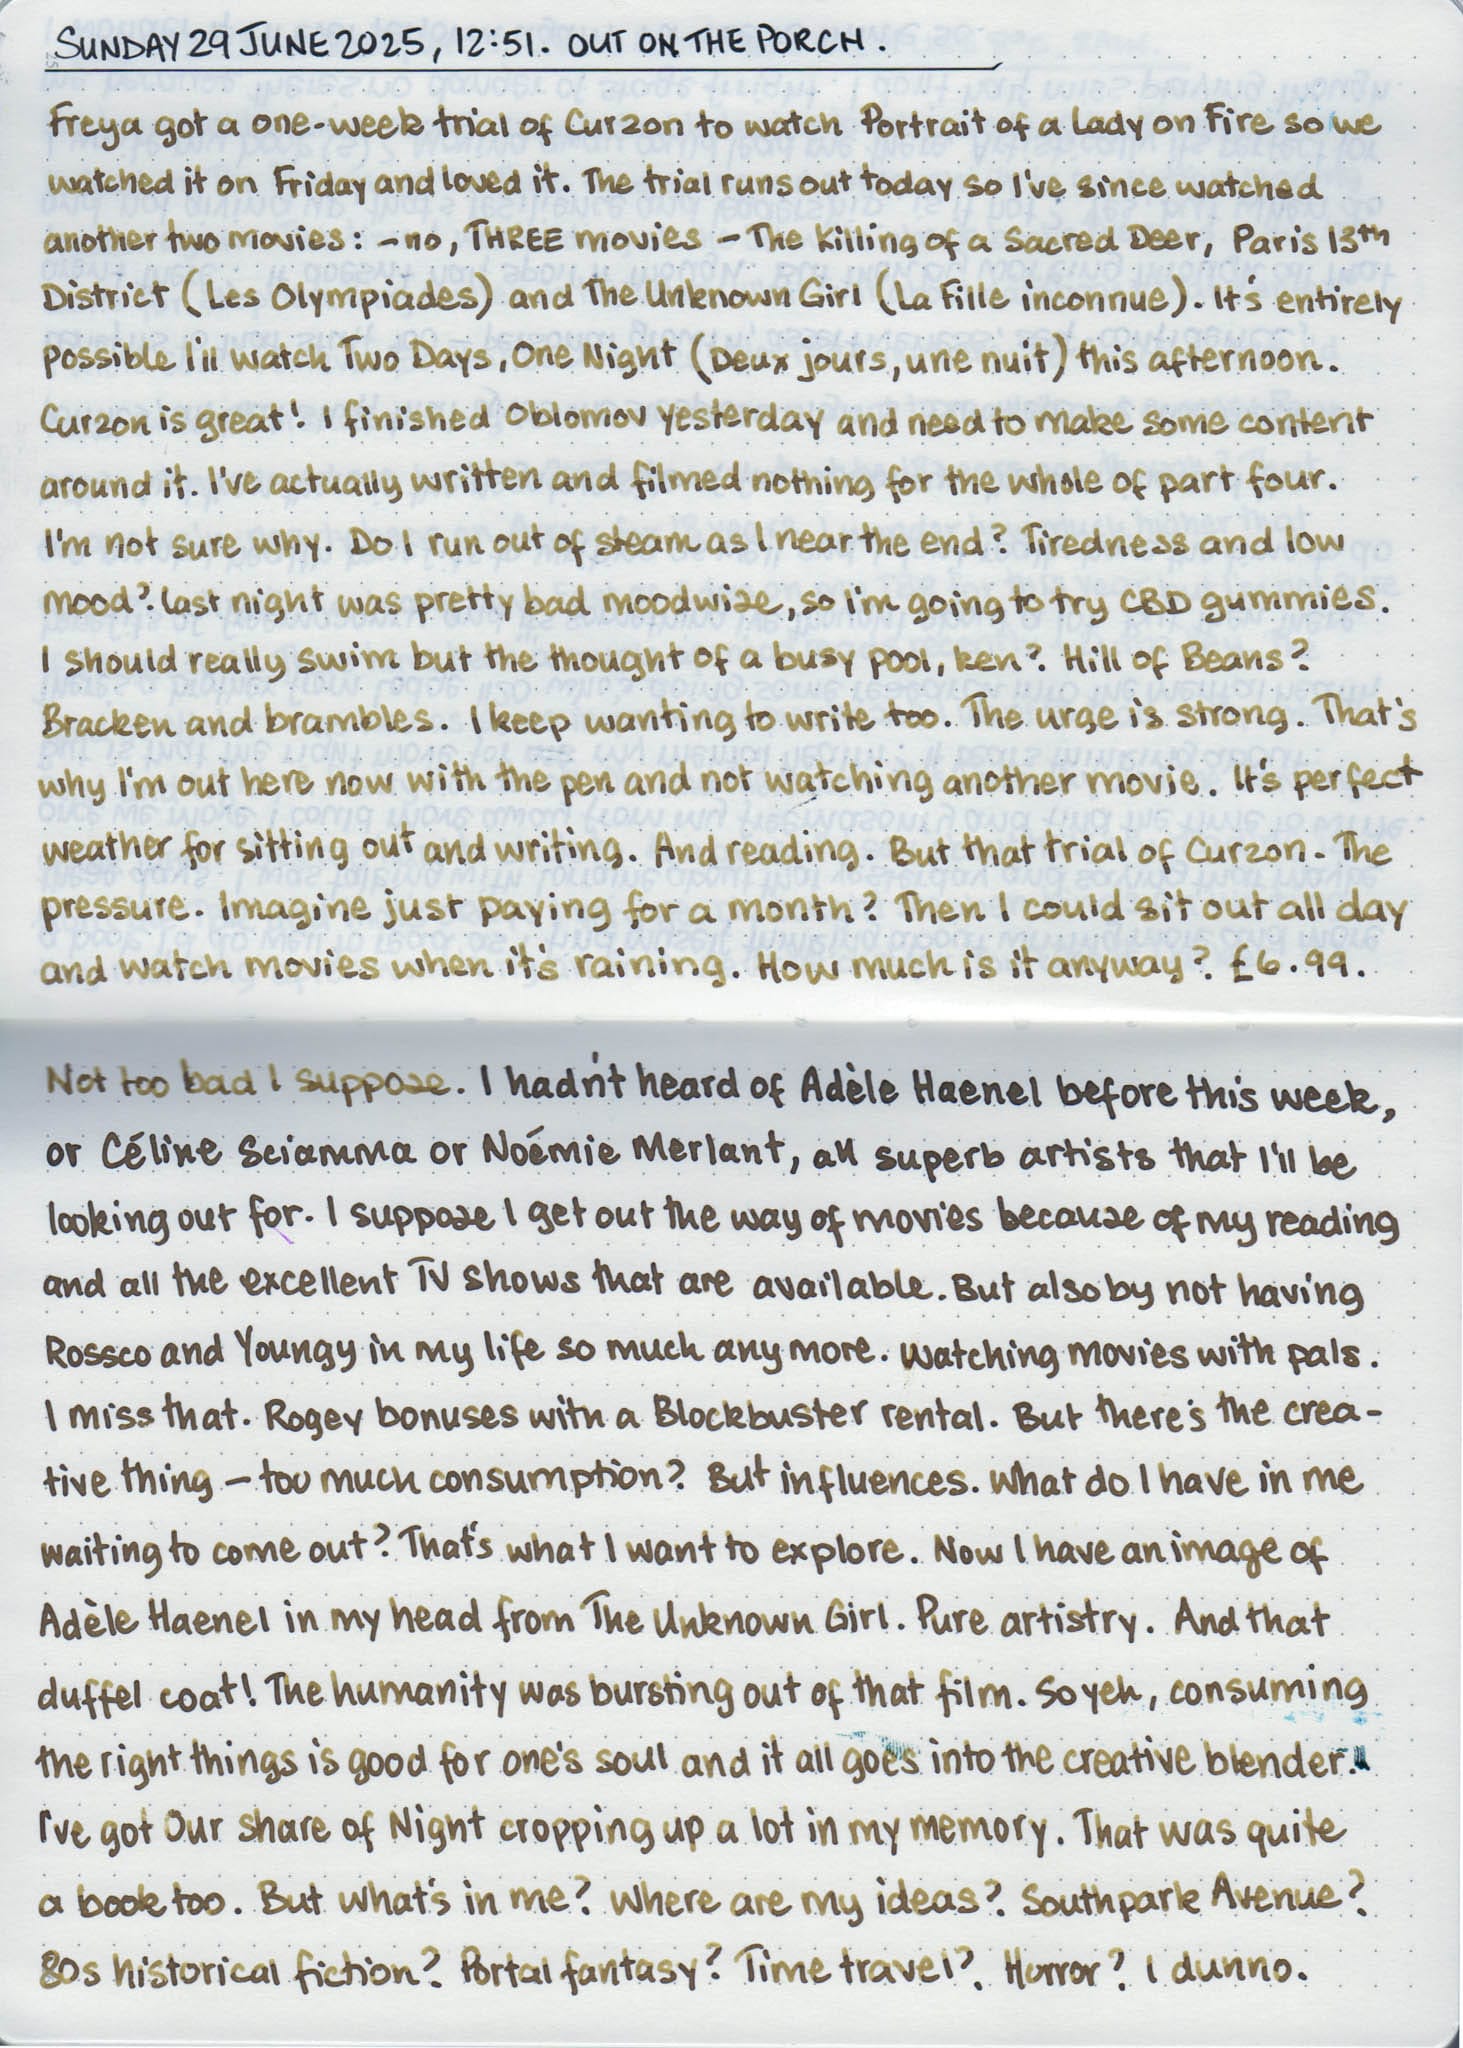 SUNDAY 29 JUNE 2025, 12:51. OUT ON THE PORCH.
Freya got a one-week trial of Curzon to watch Portrait of a Lady on Fire so we
watched it on Friday and loved it. The trial runs out today so I've since watched
another two movies: – no, THREE movies – The Killing of a Sacred Deer, Paris 13th
District (Les Olympiades) and The Unknown Girl (La Fille inconnue). It's entirely
possible I'll watch Two Days, One Night (Deux jours, une nuit) this afternoon.
Curzon is great! I finished Oblomov yesterday and need to make some content
around it. I've actually written and filmed nothing for the whole of part four.
I'm not sure why. Do I run out of steam as I near the end? Tiredness and low
mood? Last night was pretty bad moodwise, so I'm going to try CBD gummies.
I should really swim but the thought of a busy pool, ken? Hill of Beans?
Bracken and brambles. I keep wanting to write too. The urge is strong. That's
why I'm out here now with the pen and not watching another movie. It's perfect
weather for sitting out and writing. And reading. But that trial of Curzon. The
pressure. Imagine just paying for a month? Then I could sit out all day
and watch movies when it's raining. How much is it anyway? £6.99.
Not too bad I suppose. I hadn't heard of Adèle Haenel before this week,
or Céline Sciamma or Noémie Merlant, all superb artists that I'll be
looking out for. I suppose I get out the way of movies because of my reading
and all the excellent TV shows that are available. But also by not having
Rossco and Youngy in my life so much any more. Watching movies with pals.
I miss that. Rogey bonuses with a Blockbuster rental. But there's the crea-
tive thing – too much consumption? But influences. What do I have in me
waiting to come out? That's what I want to explore. Now I have an image of
Adèle Haenel in my head from The Unknown Girl. Pure artistry. And that
duffel coat! The humanity was bursting out of that film. So yeh, consuming
the right things is good for one's soul and it all goes into the creative blender.
I've got Our Share of Night cropping up a lot in my memory. That was quite
a book too. But what's in me? Where are my ideas? Southpark Avenue?
80s historical fiction? Portal fantasy? Time travel? Horror? I dunno.